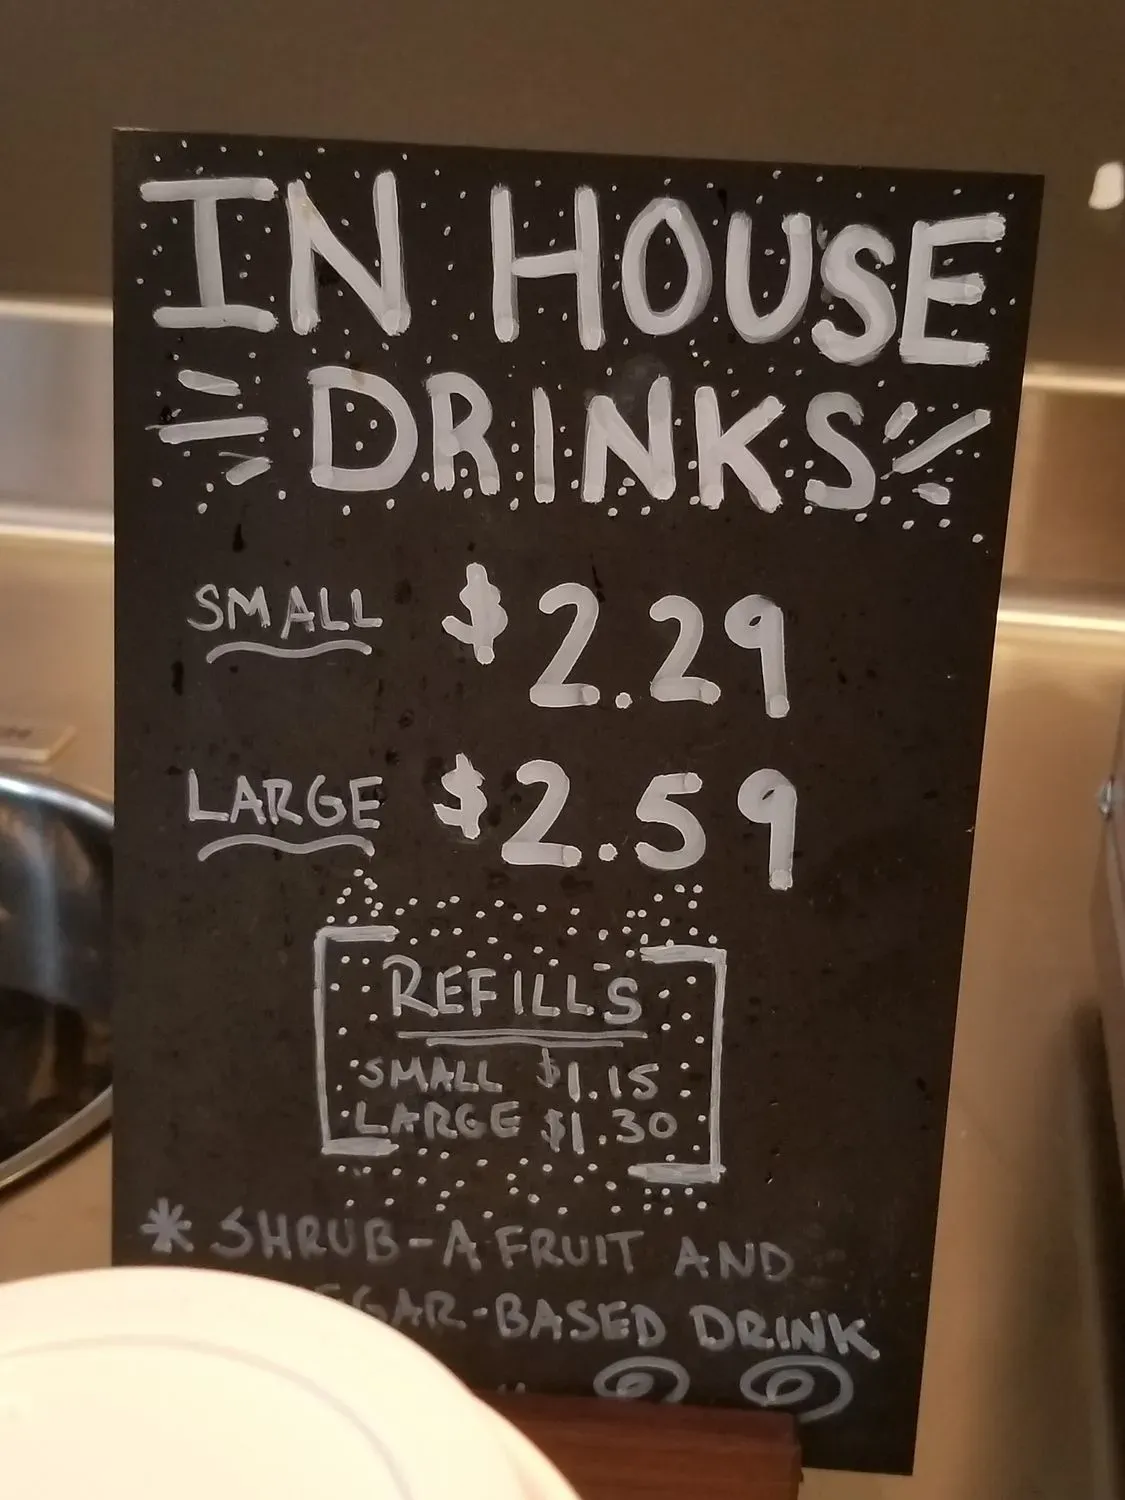 IN HOUSE
DRINKS
SMALL $2.29
LARGE $2.59
REFILLS
SMALL $1.15
LARGE $1.30
* SHRUB-A FRUIT AND
EGAR-BASED DRINK